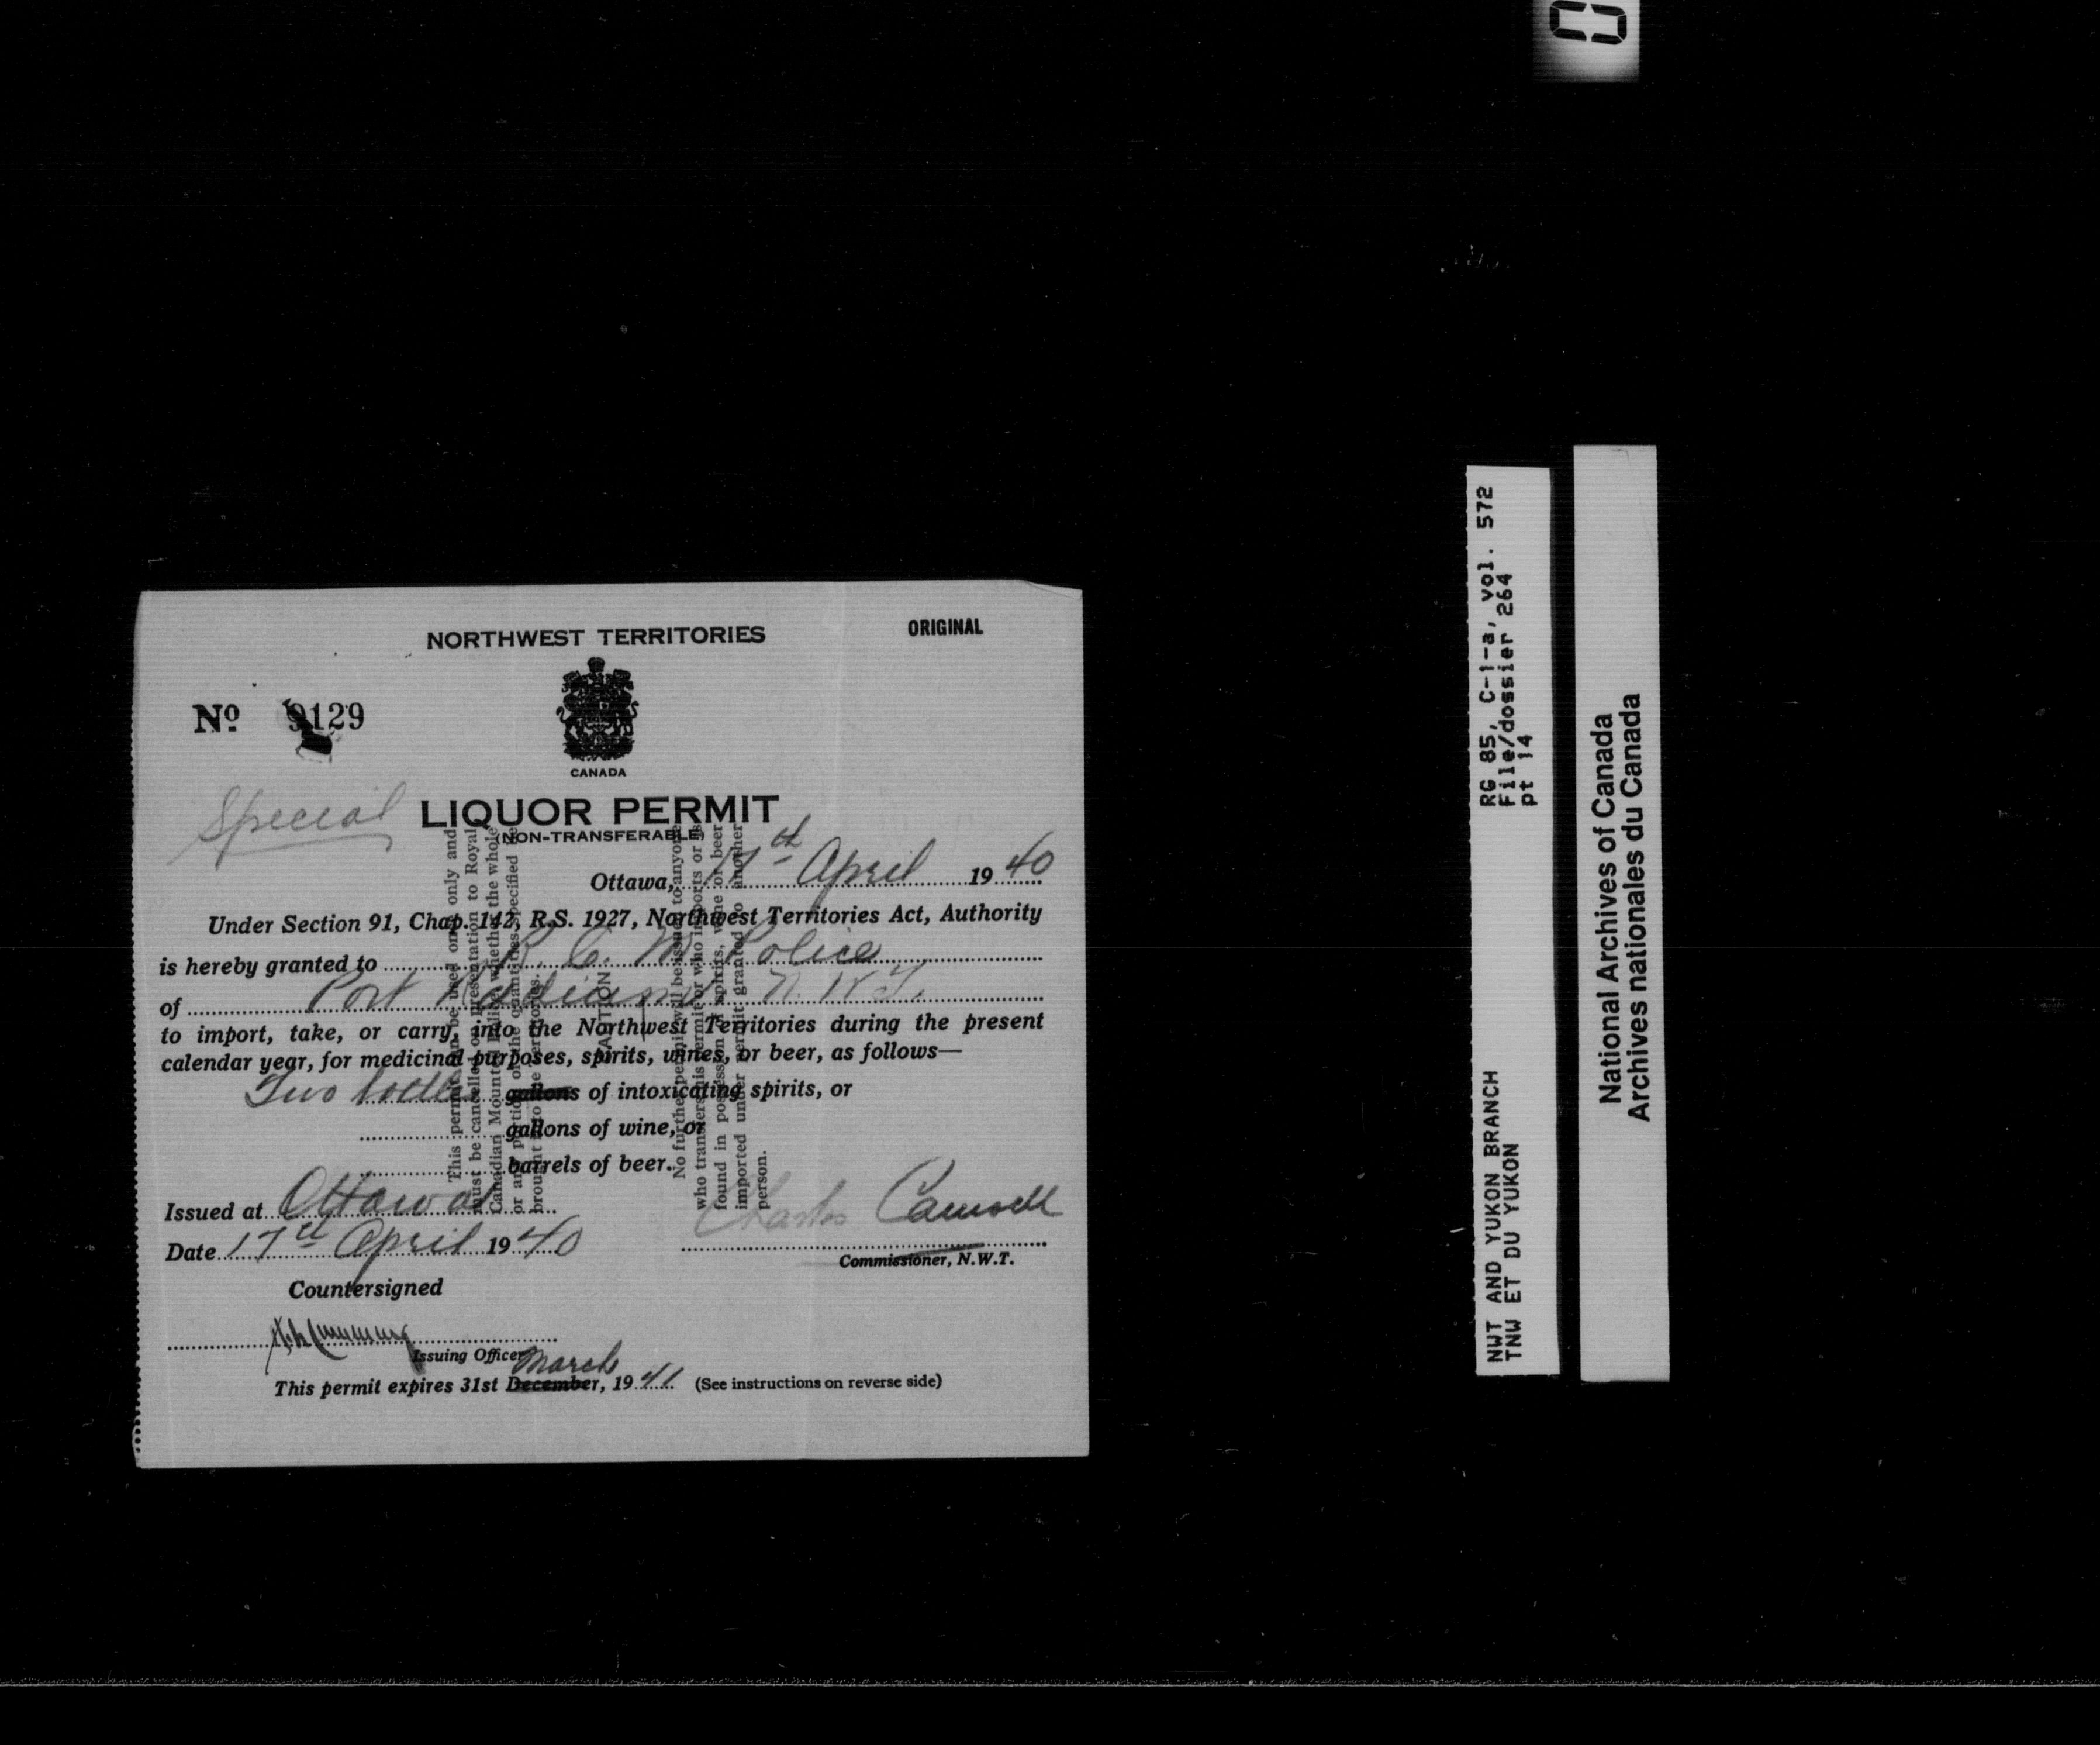 NORTHWEST TERRITORIES
ORIGINAL
Nº 9129
CANADA
Special
LIQUOR PERMIT
(NON-TRANSFERABLE)
Ottawa, 17th April 1940
Under Section 91, Chap. 142, R.S. 1927, Northwest Territories Act, Authority
is hereby granted to R. C. M. Police
of Port Radium N.W.T.
to import, take, or carry, into the Northwest Territories during the present
calendar year, for medicinal purposes, spirits, wines, or beer, as follows—
Two bottles gallons of intoxicating spirits, or
gallons of wine, or
barrels of beer.
Issued at Ottawa
Date 17th April 1940
Charles Camsell
Commissioner, N.W.T.
Countersigned
Cumming
Issuing Officer
March
This permit expires 31st December, 1941 (See instructions on reverse side)
This permit can be used once only and
must be cancelled on presentation to Royal
Canadian Mounted Police whether the whole
or any portion of the quantities specified is
brought into the Territories.
CAUTION
No further permit will be issued to anyone
who transfers his permit or who imports or is
found in possession of spirits, wine or beer
imported under permit granted to another
person.
RG 85, C-1-a, vol. 572
File/dossier 264
pt 14
NWT AND YUKON BRANCH
TNW ET DU YUKON
National Archives of Canada
Archives nationales du Canada